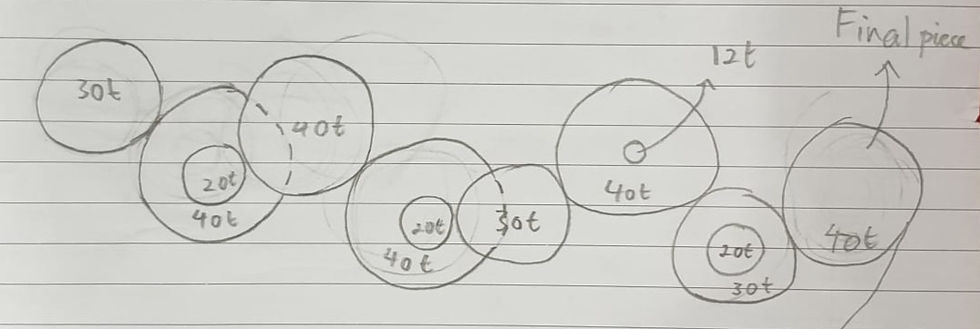 Final piece
12t
30t
40t
20t
40t
20t
40t
30t
40t
20t
30t
40t